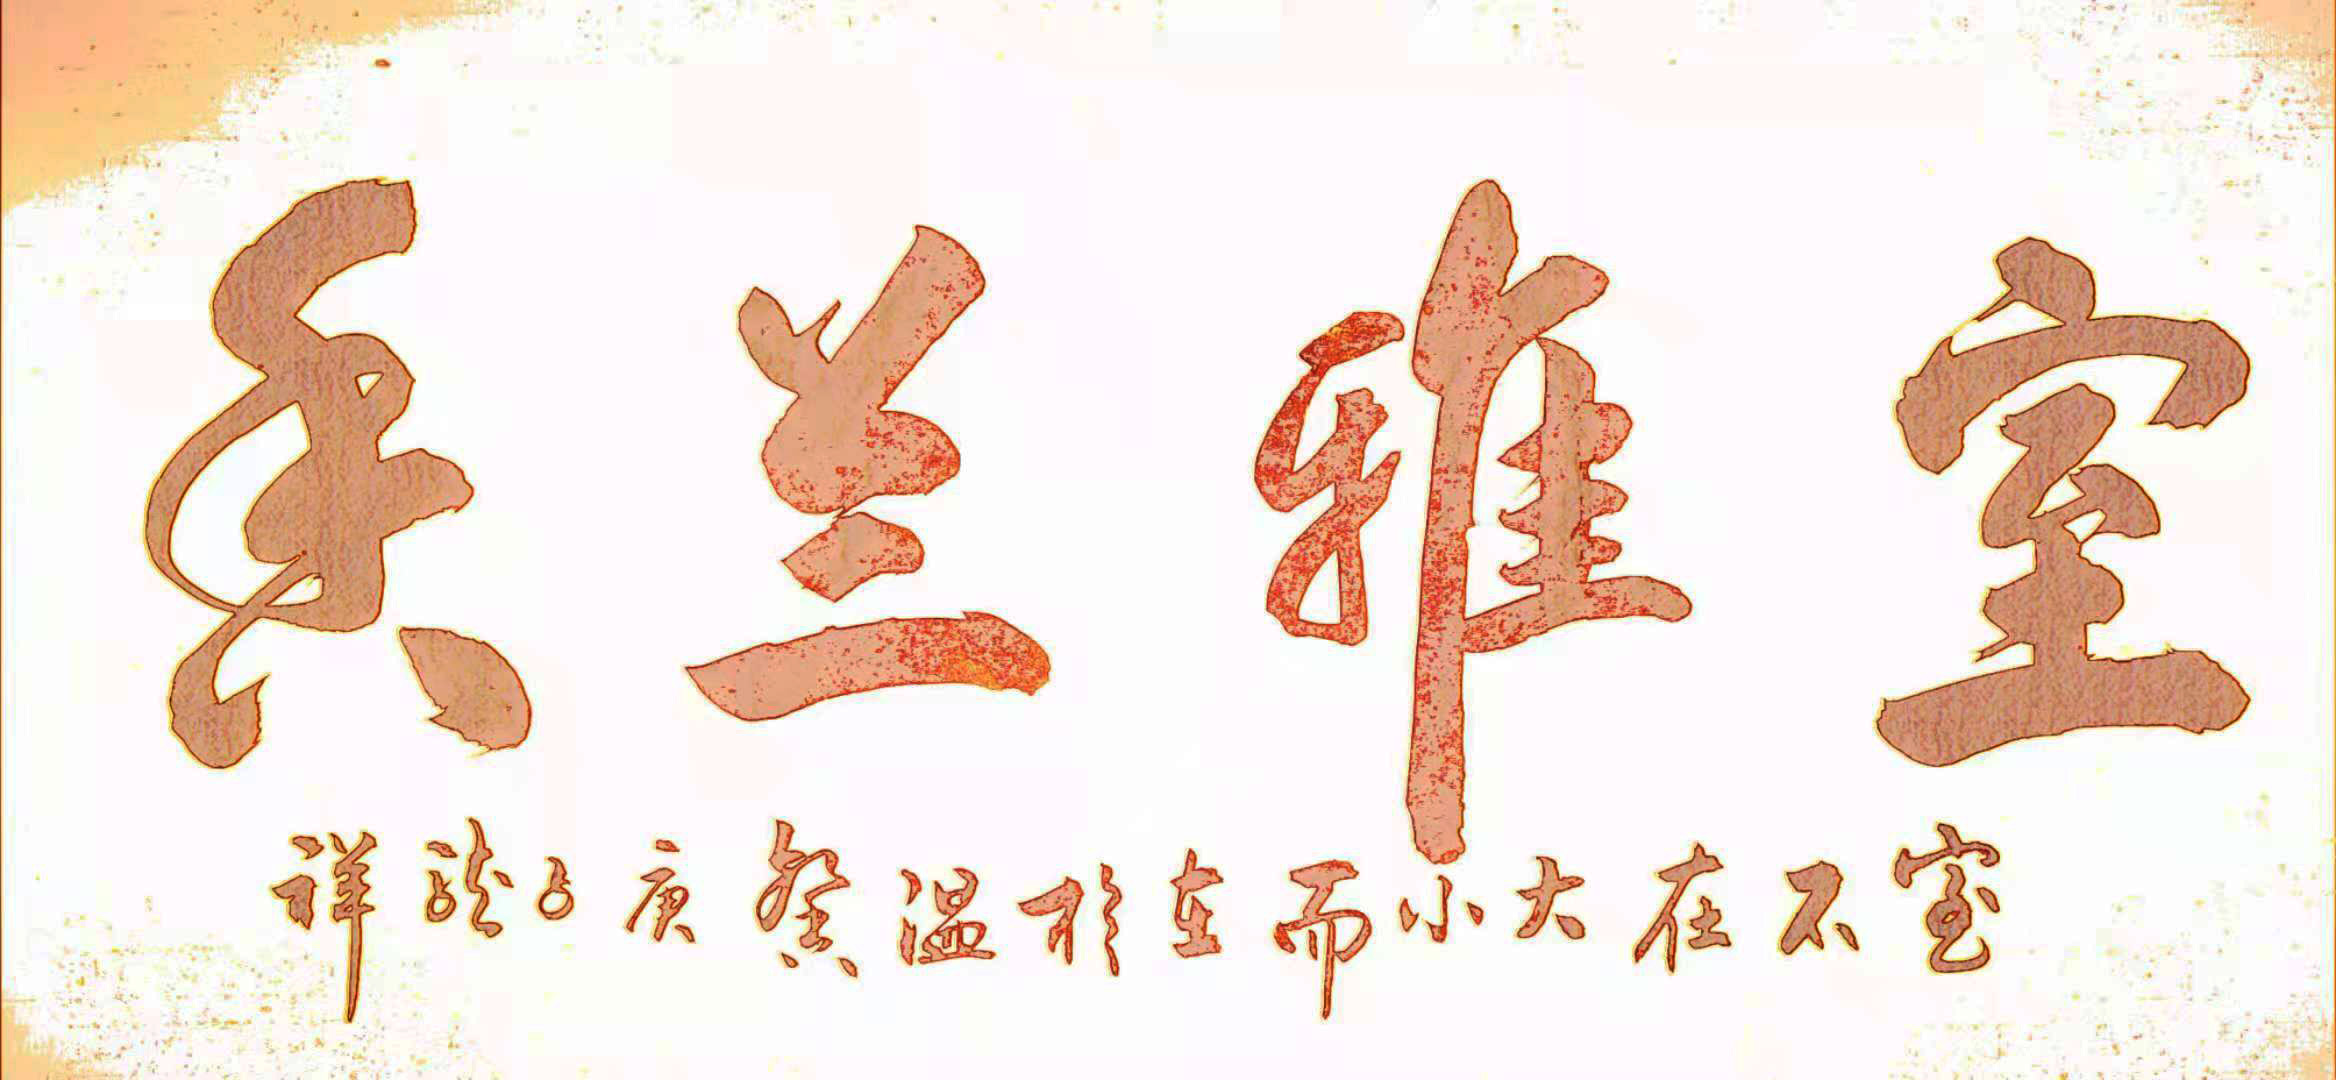 室雅兰香
室不在大小而在於温馨庚子龙祥